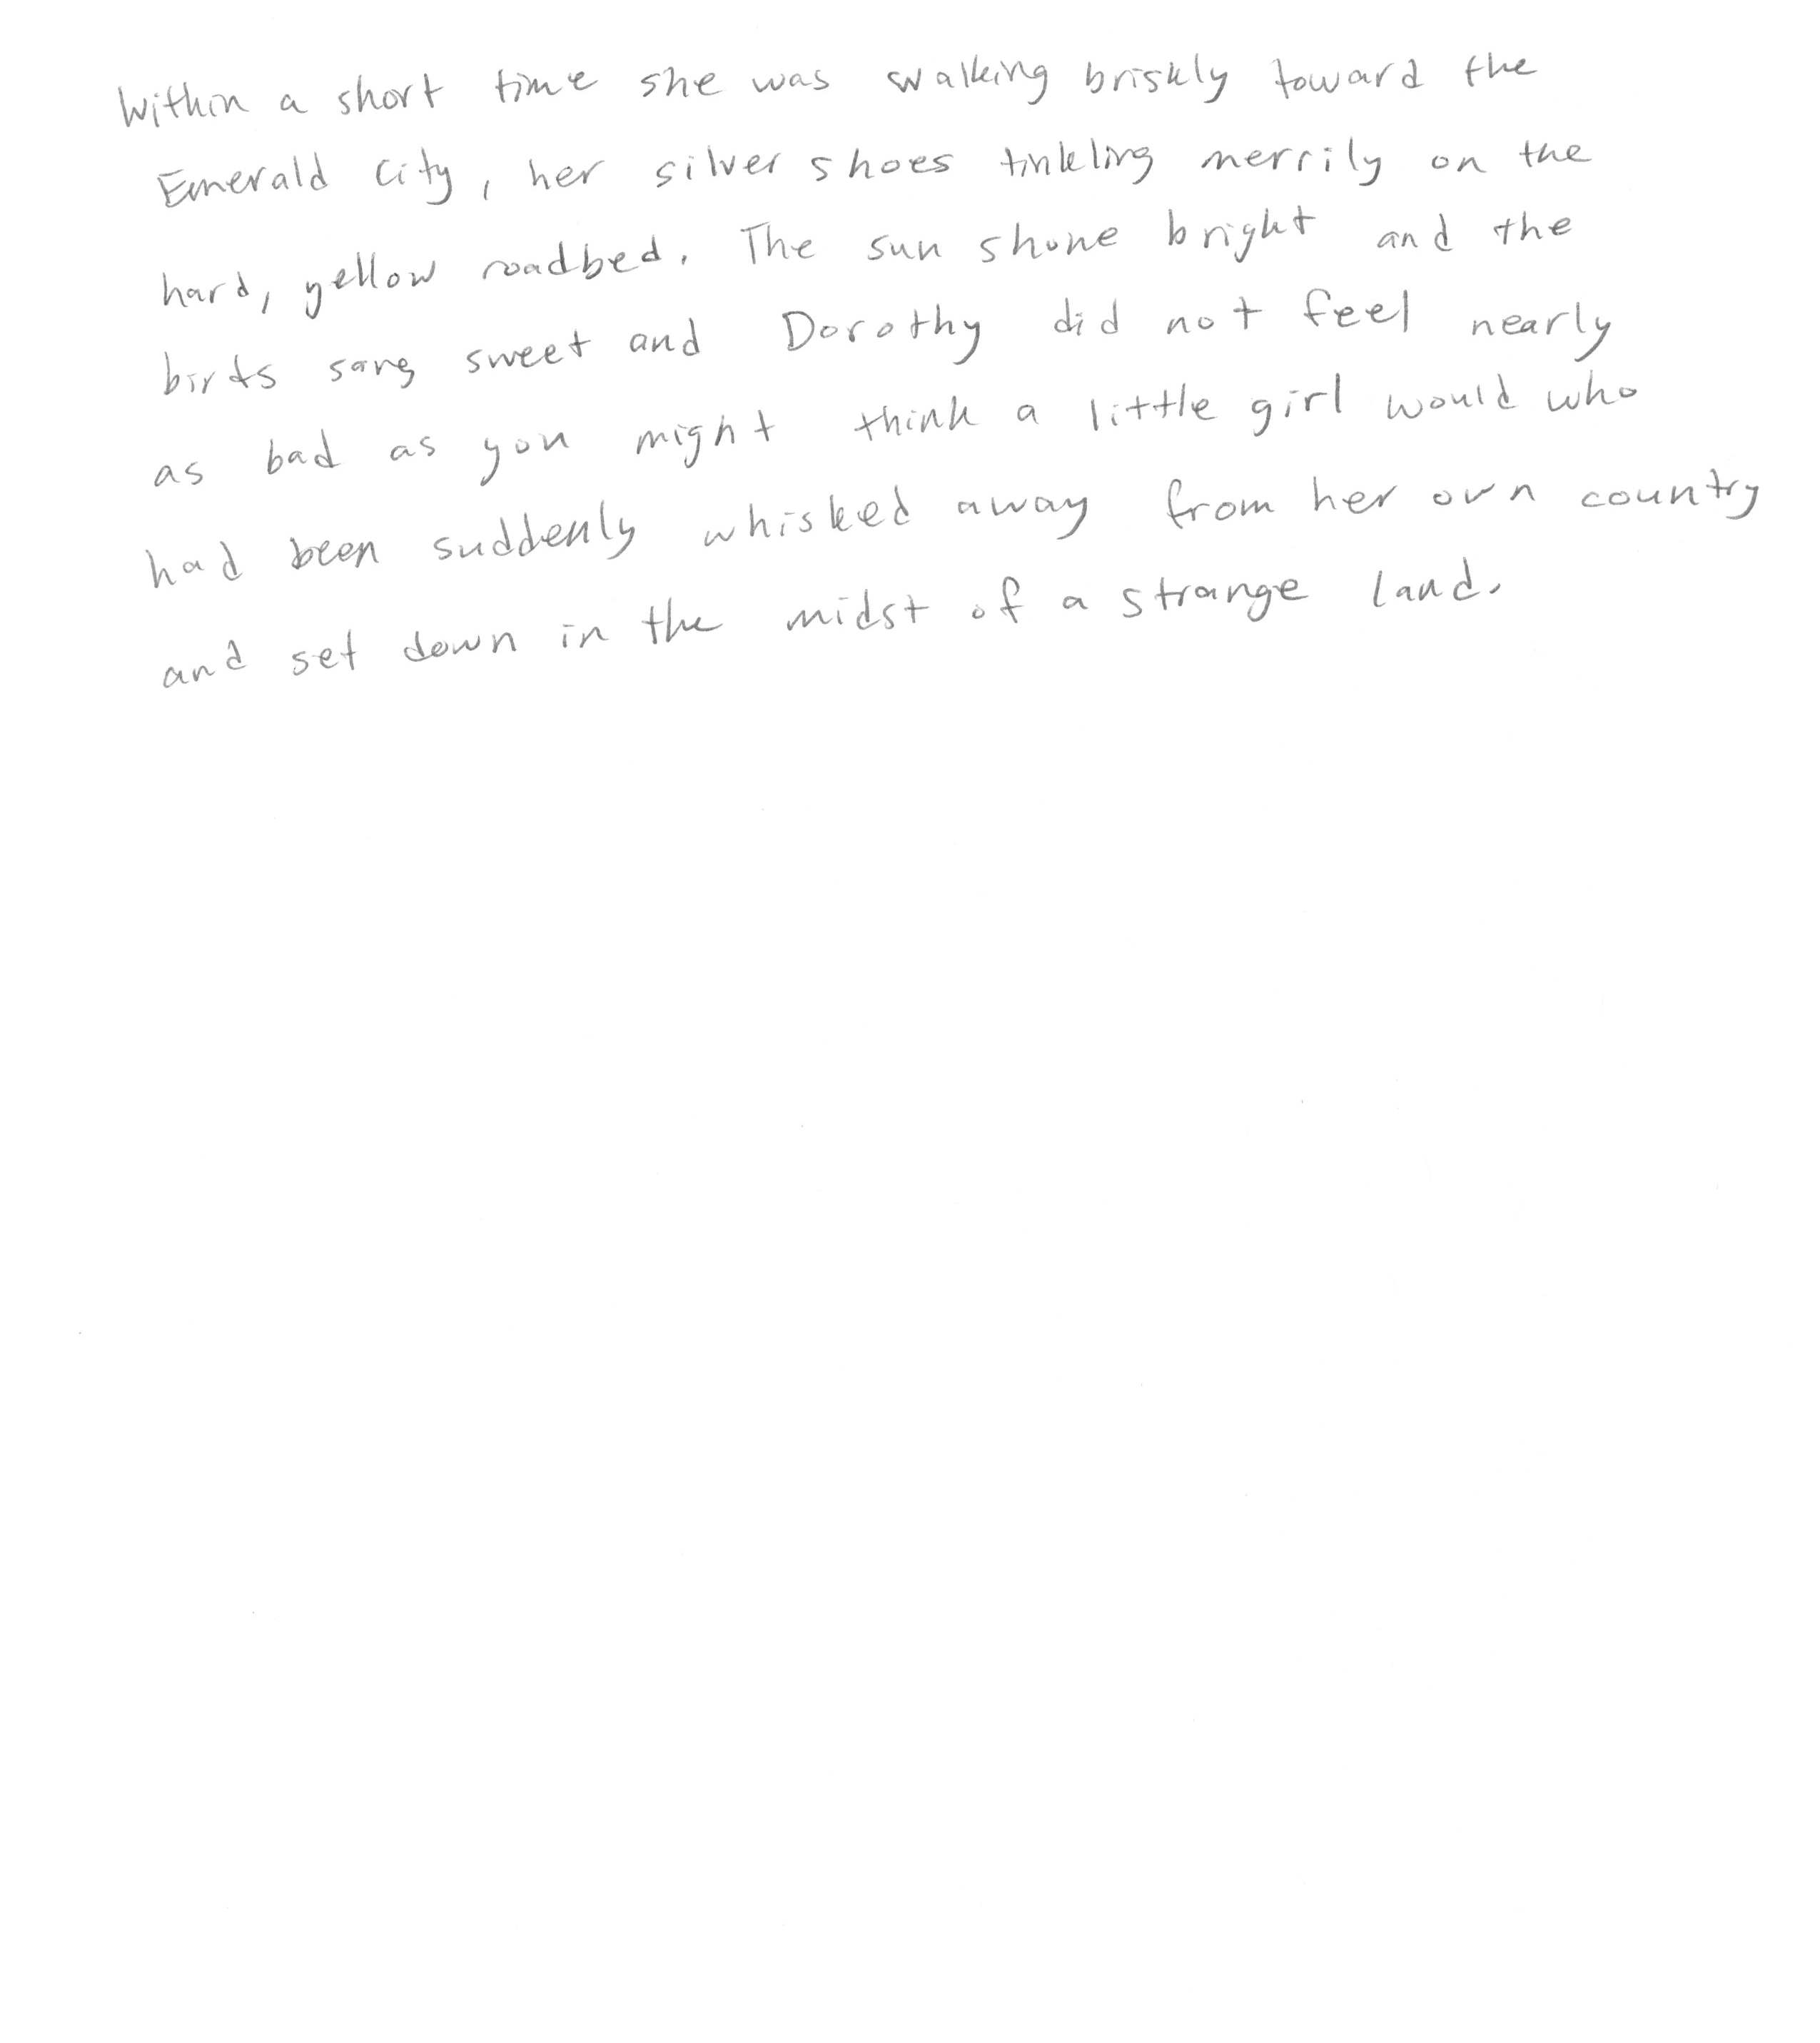 Within a short time she was walking briskly toward the
Emerald City, her silver shoes tinkling merrily on the
hard, yellow roadbed. The sun shone bright and the
birds sang sweet and Dorothy did not feel nearly
as bad as you might think a little girl would who
had been suddenly whisked away from her own country
and set down in the midst of a strange land.